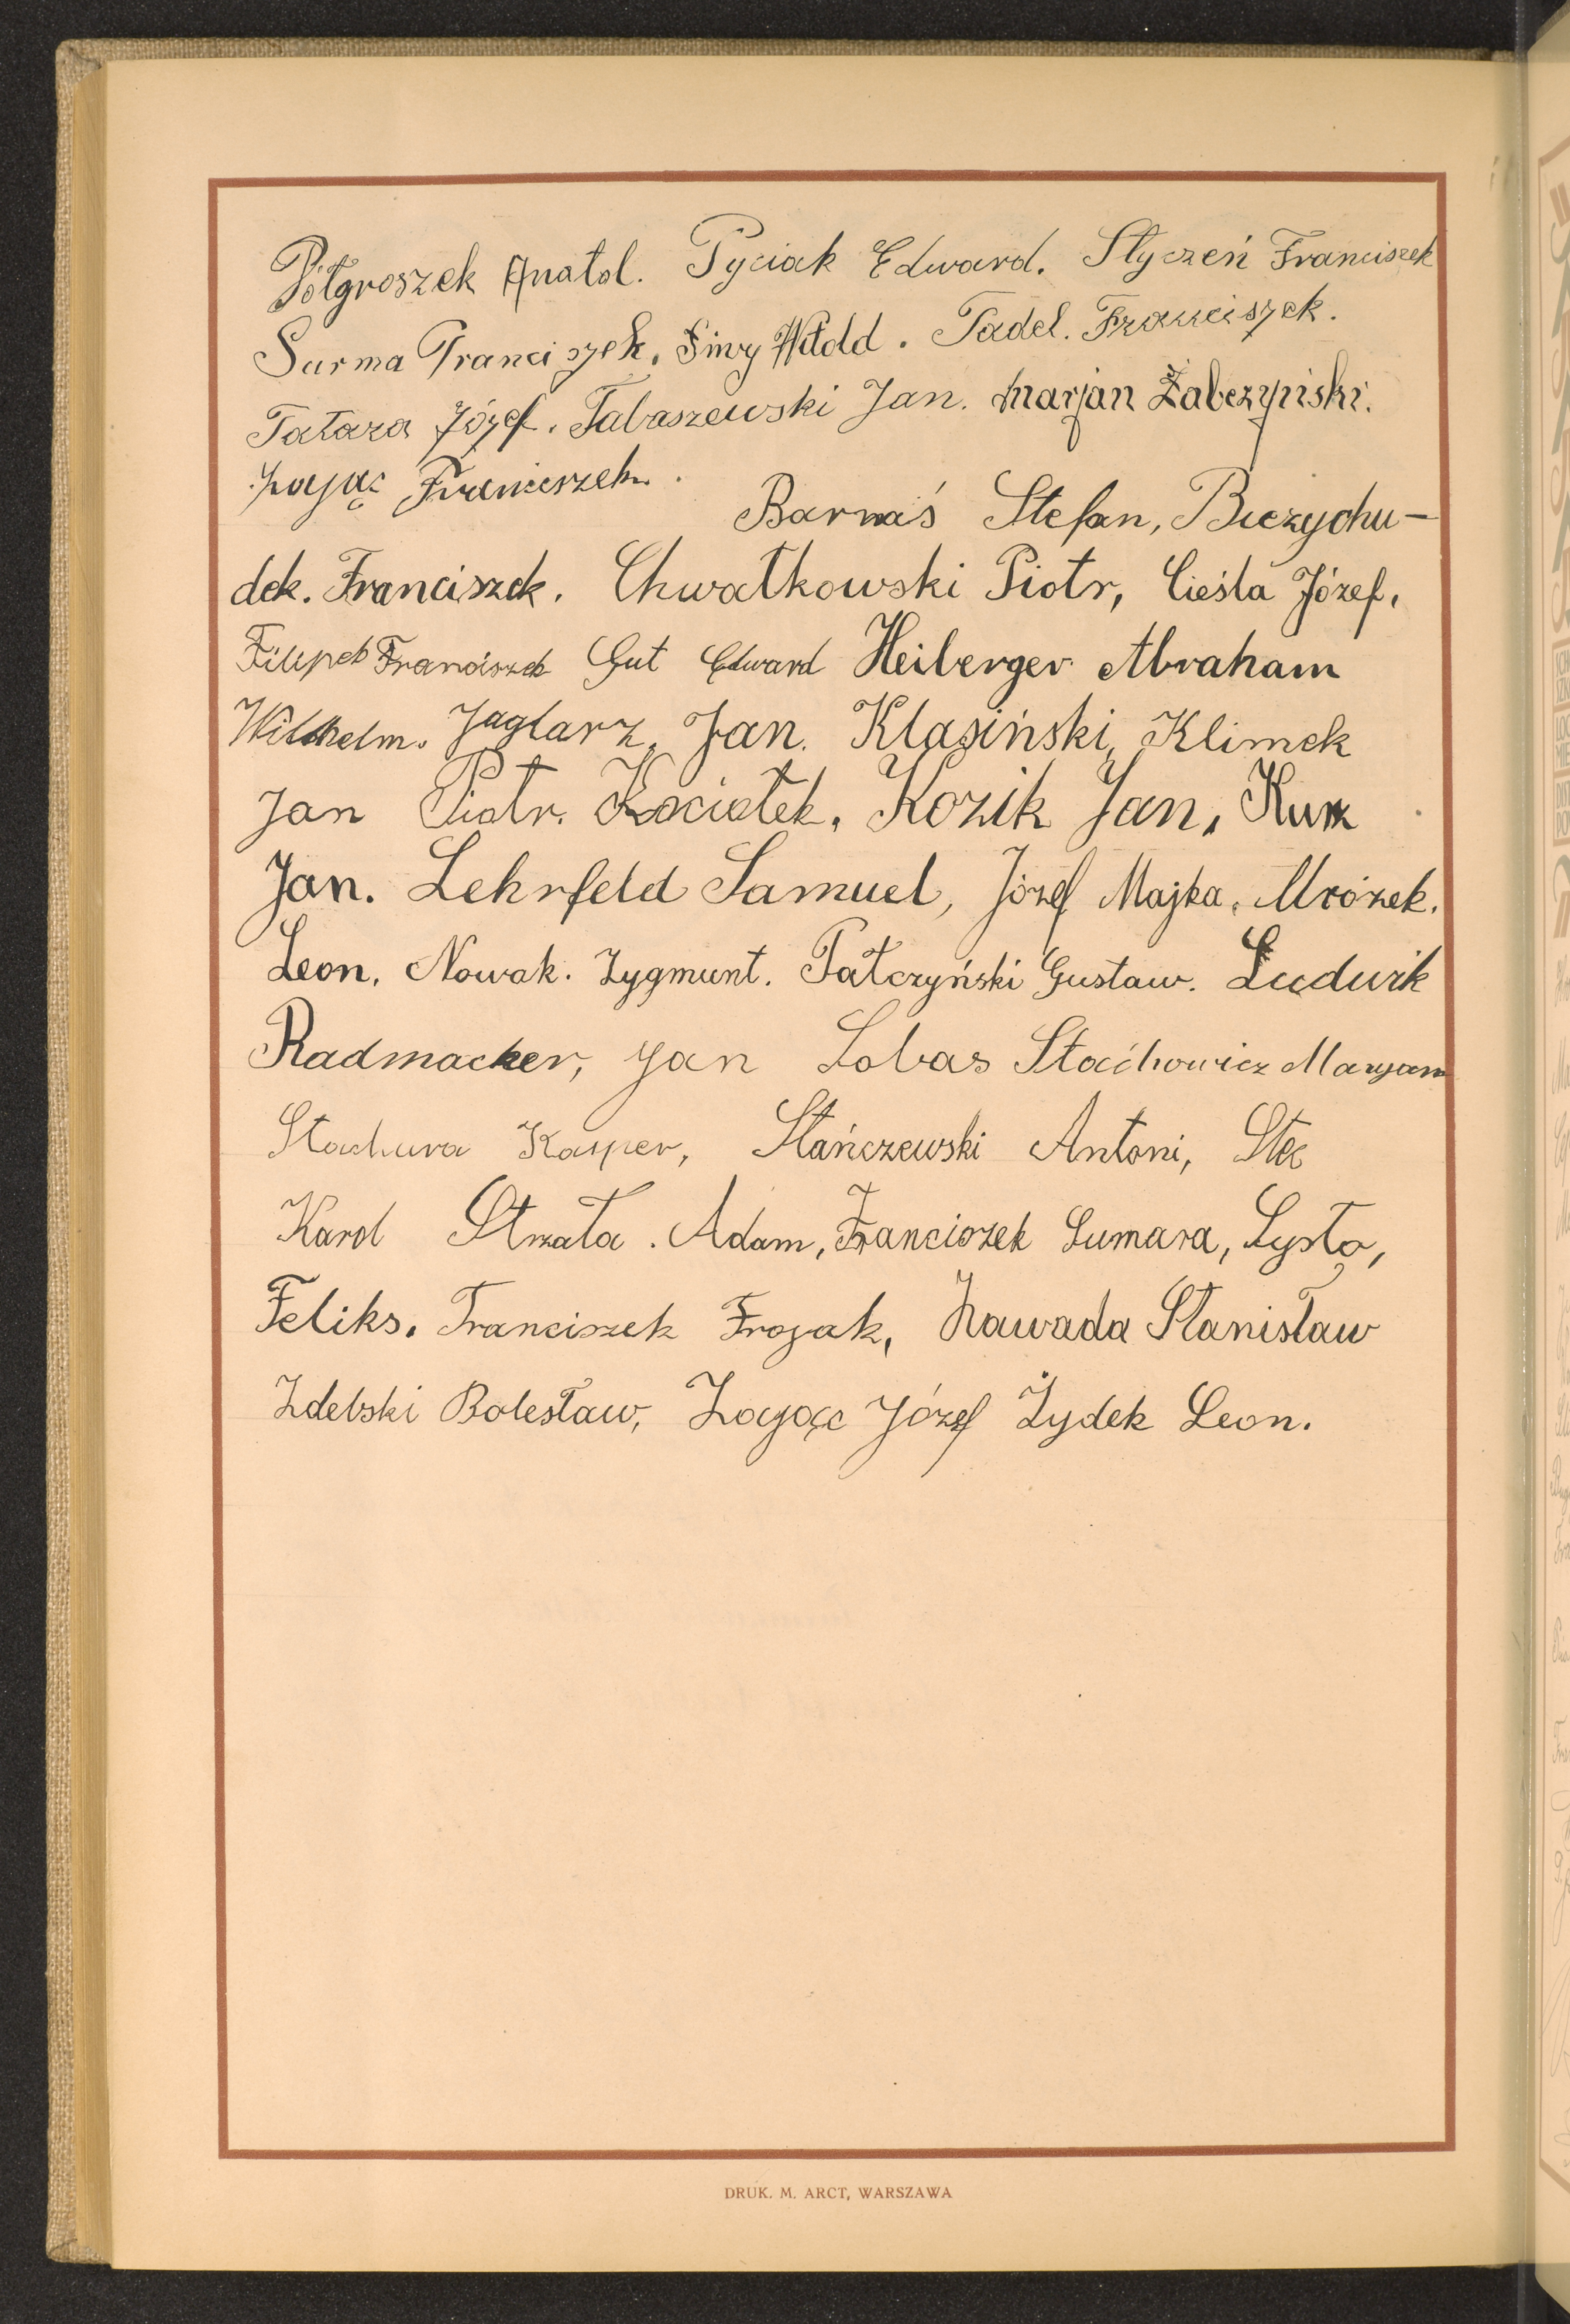 Półgroszek Anatol. Pyciak Edward. Styczeń Franciszek
Surma Franciszek. Siwy Witold. Tadel. Franciszek.
Tatara Józef. Tabaszewski Jan. Marjan Żabczyński.
Zając Franciszek.
Barnaś Stefan, Biezychu-
dek. Franciszek. Chwatkowski Piotr, Cieśla Józef,
Filipek Franciszek Gut Edward Heiberger Abraham
Wilhelm. Jaglarz, Jan. Klasiński, Klimek
Jan Piotr. Kociołek, Kozik Jan, Kurz
Jan. Lehrfeld Samuel, Józef Majka, Mrózek.
Leon, Nowak. Zygmunt. Pałczyński Gustaw. Ludwik
Radmacker, Jan Sobas Stachowicz Maryan
Stachura Kasper, Stańczewski Antoni, Stec
Karol Strzała. Adam, Franciszek Sumara, Sysło,
Feliks. Franciszek Trojak, Zawada Stanisław
Zdebski Bolesław, Zając Józef Żydek Leon.
DRUK. M. ARCT, WARSZAWA